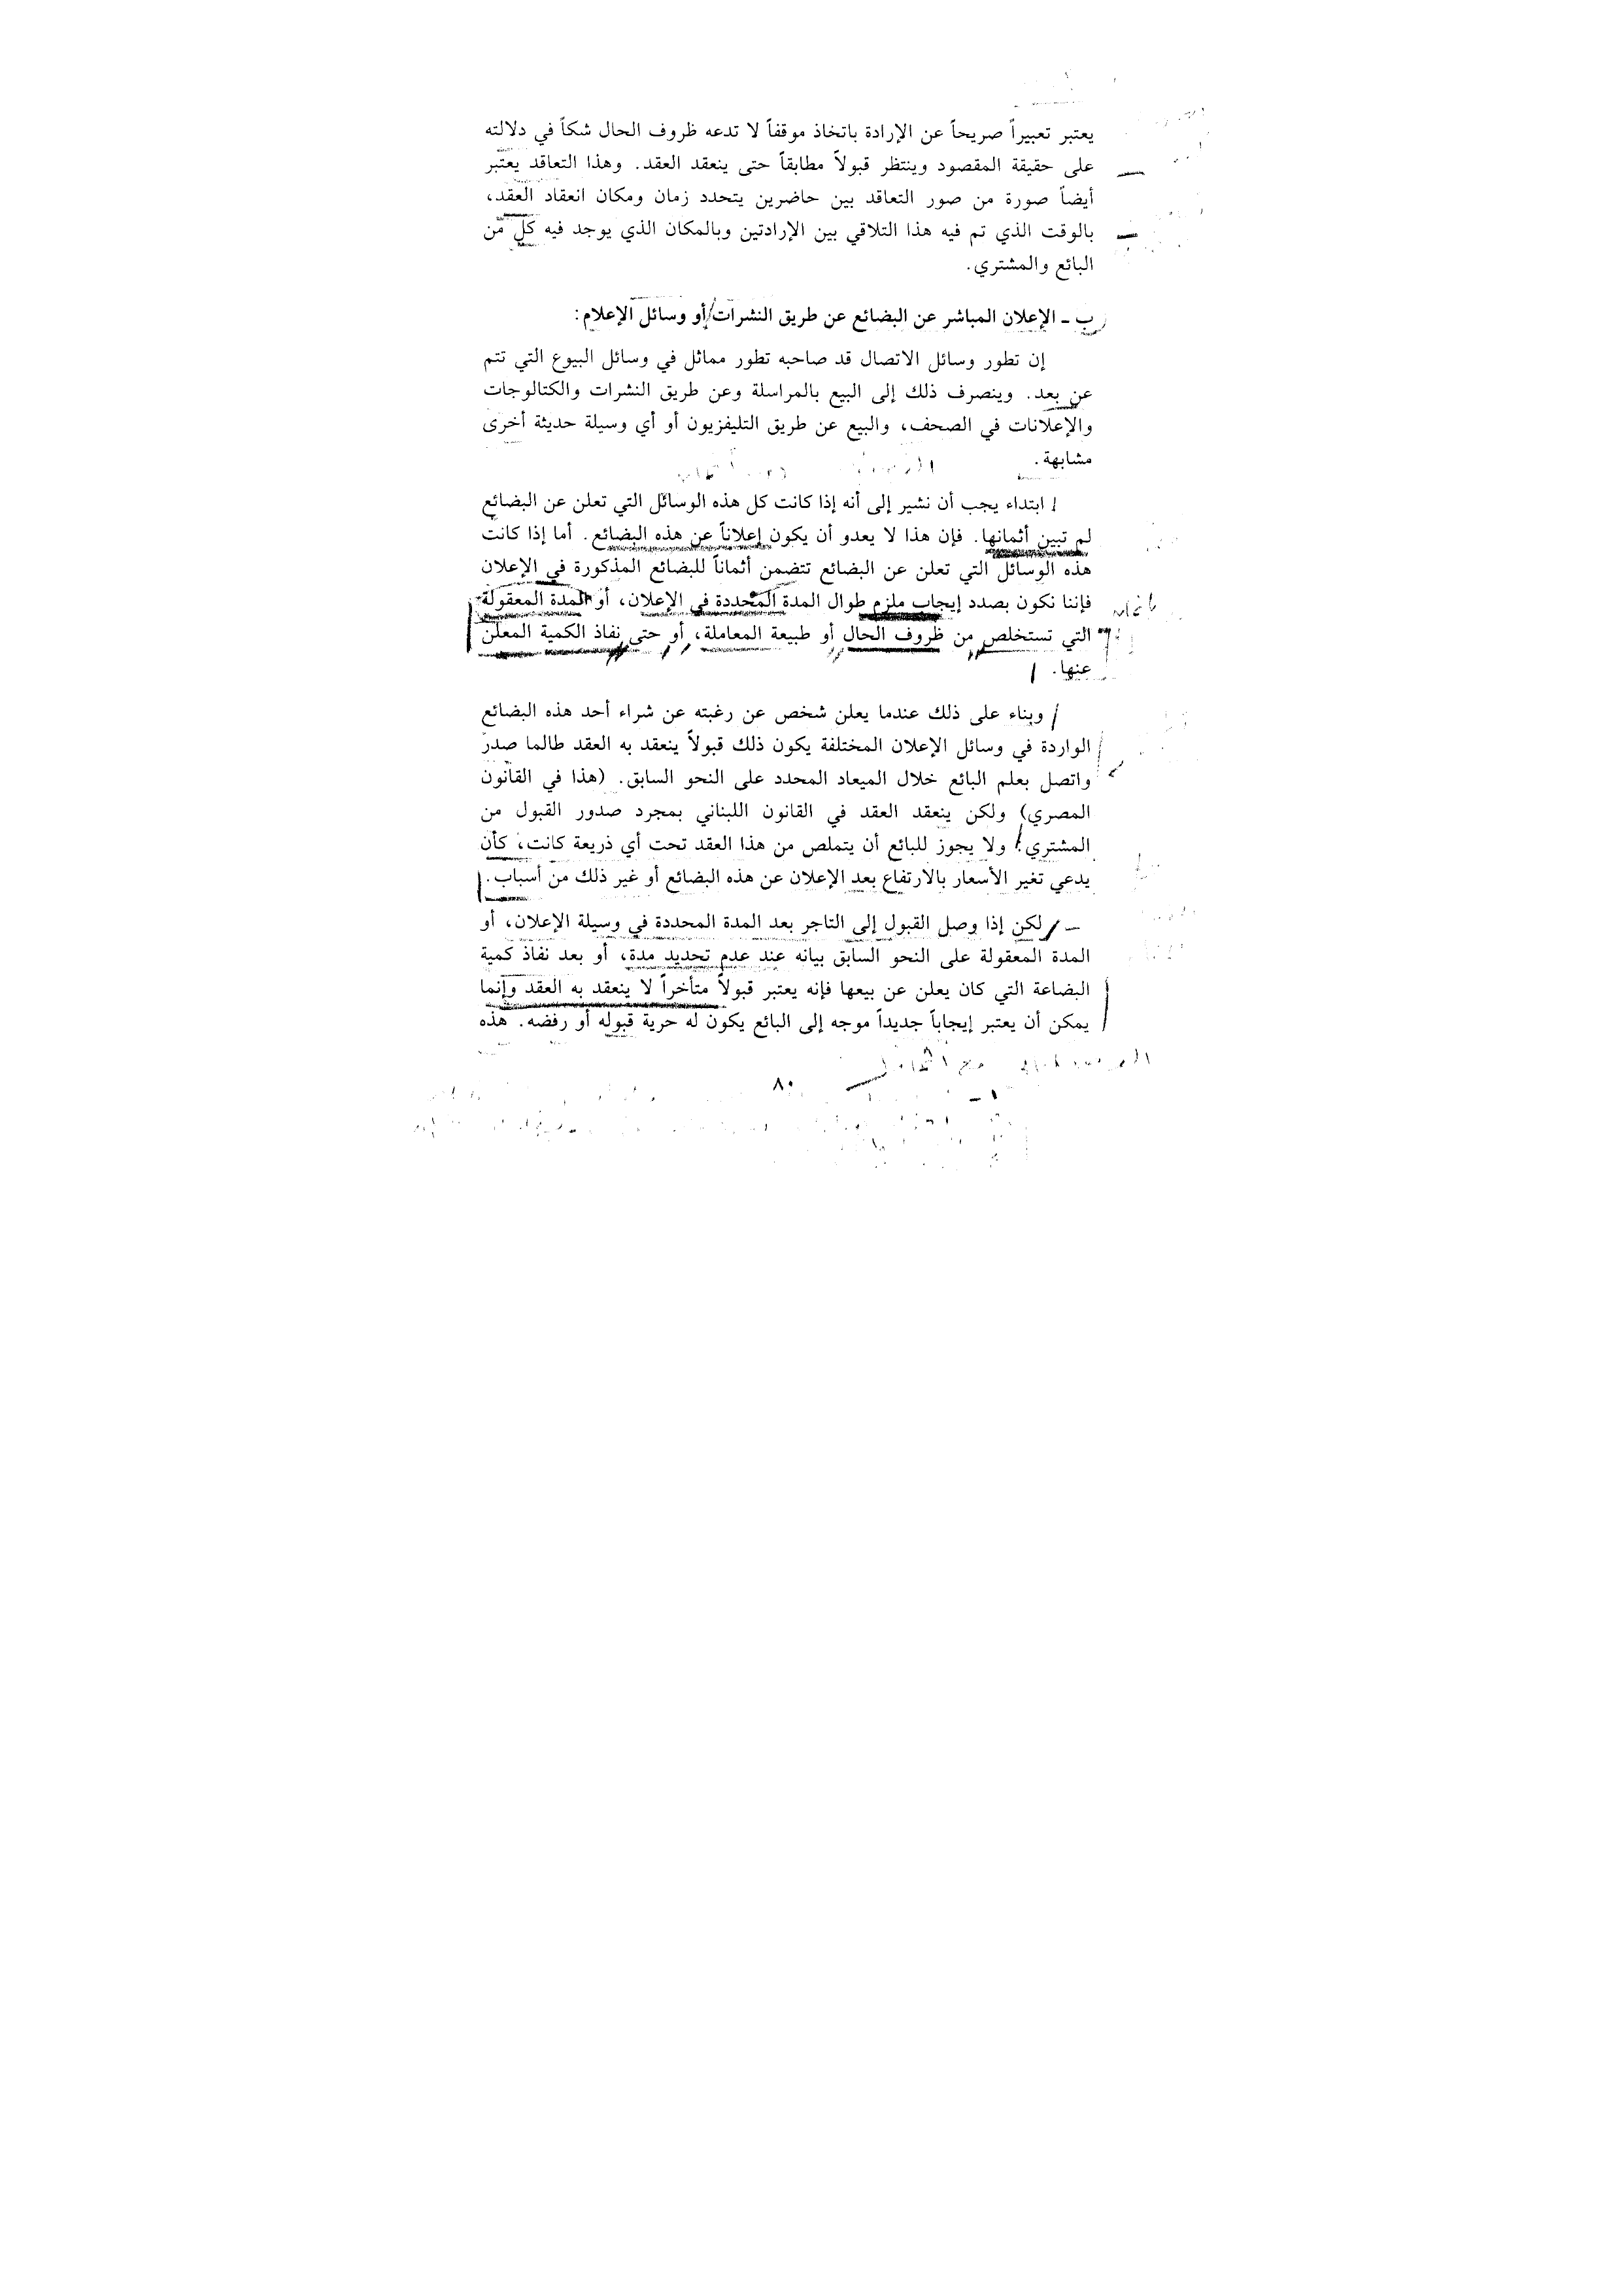 يعتبر تعبيراً صريحاً عن الإرادة باتخاذ موقفاً لا تدعه ظروف الحال شكاً في دلالته
على حقيقة المقصود وينتظر قبولاً مطابقاً حتى ينعقد العقد. وهذا التعاقد يعتبر
أيضاً صورة من صور التعاقد بين حاضرين يتحدد زمان ومكان انعقاد العقد،
بالوقت الذي تم فيه هذا التلاقي بين الإرادتين وبالمكان الذي يوجد فيه كل من
البائع والمشتري.
ب ـ الإعلان المباشر عن البضائع عن طريق النشرات أو وسائل الإعلام:
إن تطور وسائل الاتصال قد صاحبه تطور مماثل في وسائل البيوع التي تتم
عن بعد. وينصرف ذلك إلى البيع بالمراسلة وعن طريق النشرات والكتالوجات
والإعلانات في الصحف، والبيع عن طريق التليفزيون أو أي وسيلة حديثة أخرى
مشابهة.
ابتداء يجب أن نشير إلى أنه إذا كانت كل هذه الوسائل التي تعلن عن البضائع
لم تبين أثمانها. فإن هذا لا يعدو أن يكون إعلاناً عن هذه البضائع. أما إذا كانت
هذه الوسائل التي تعلن عن البضائع تتضمن أثماناً للبضائع المذكورة في الإعلان
فإننا نكون بصدد إيجاب ملزم طوال المدة المحددة في الإعلان، أو المدة المعقولة
التي تستخلص من ظروف الحال أو طبيعة المعاملة، أو حتى نفاذ الكمية المعلن
عنها.
وبناء على ذلك عندما يعلن شخص عن رغبته عن شراء أحد هذه البضائع
الواردة في وسائل الإعلان المختلفة يكون ذلك قبولاً ينعقد به العقد طالما صدر
واتصل بعلم البائع خلال الميعاد المحدد على النحو السابق. (هذا في القانون
المصري) ولكن ينعقد العقد في القانون اللبناني بمجرد صدور القبول من
المشتري. ولا يجوز للبائع أن يتملص من هذا العقد تحت أي ذريعة كانت، كأن
يدعي تغير الأسعار بالارتفاع بعد الإعلان عن هذه البضائع أو غير ذلك من أسباب.
ـ لكن إذا وصل القبول إلى التاجر بعد المدة المحددة في وسيلة الإعلان، أو
المدة المعقولة على النحو السابق بيانه عند عدم تحديد مدة، أو بعد نفاذ كمية
البضاعة التي كان يعلن عن بيعها فإنه يعتبر قبولاً متأخراً لا ينعقد به العقد وإنما
يمكن أن يعتبر إيجاباً جديداً موجه إلى البائع يكون له حرية قبوله أو رفضه. هذه
٨٠